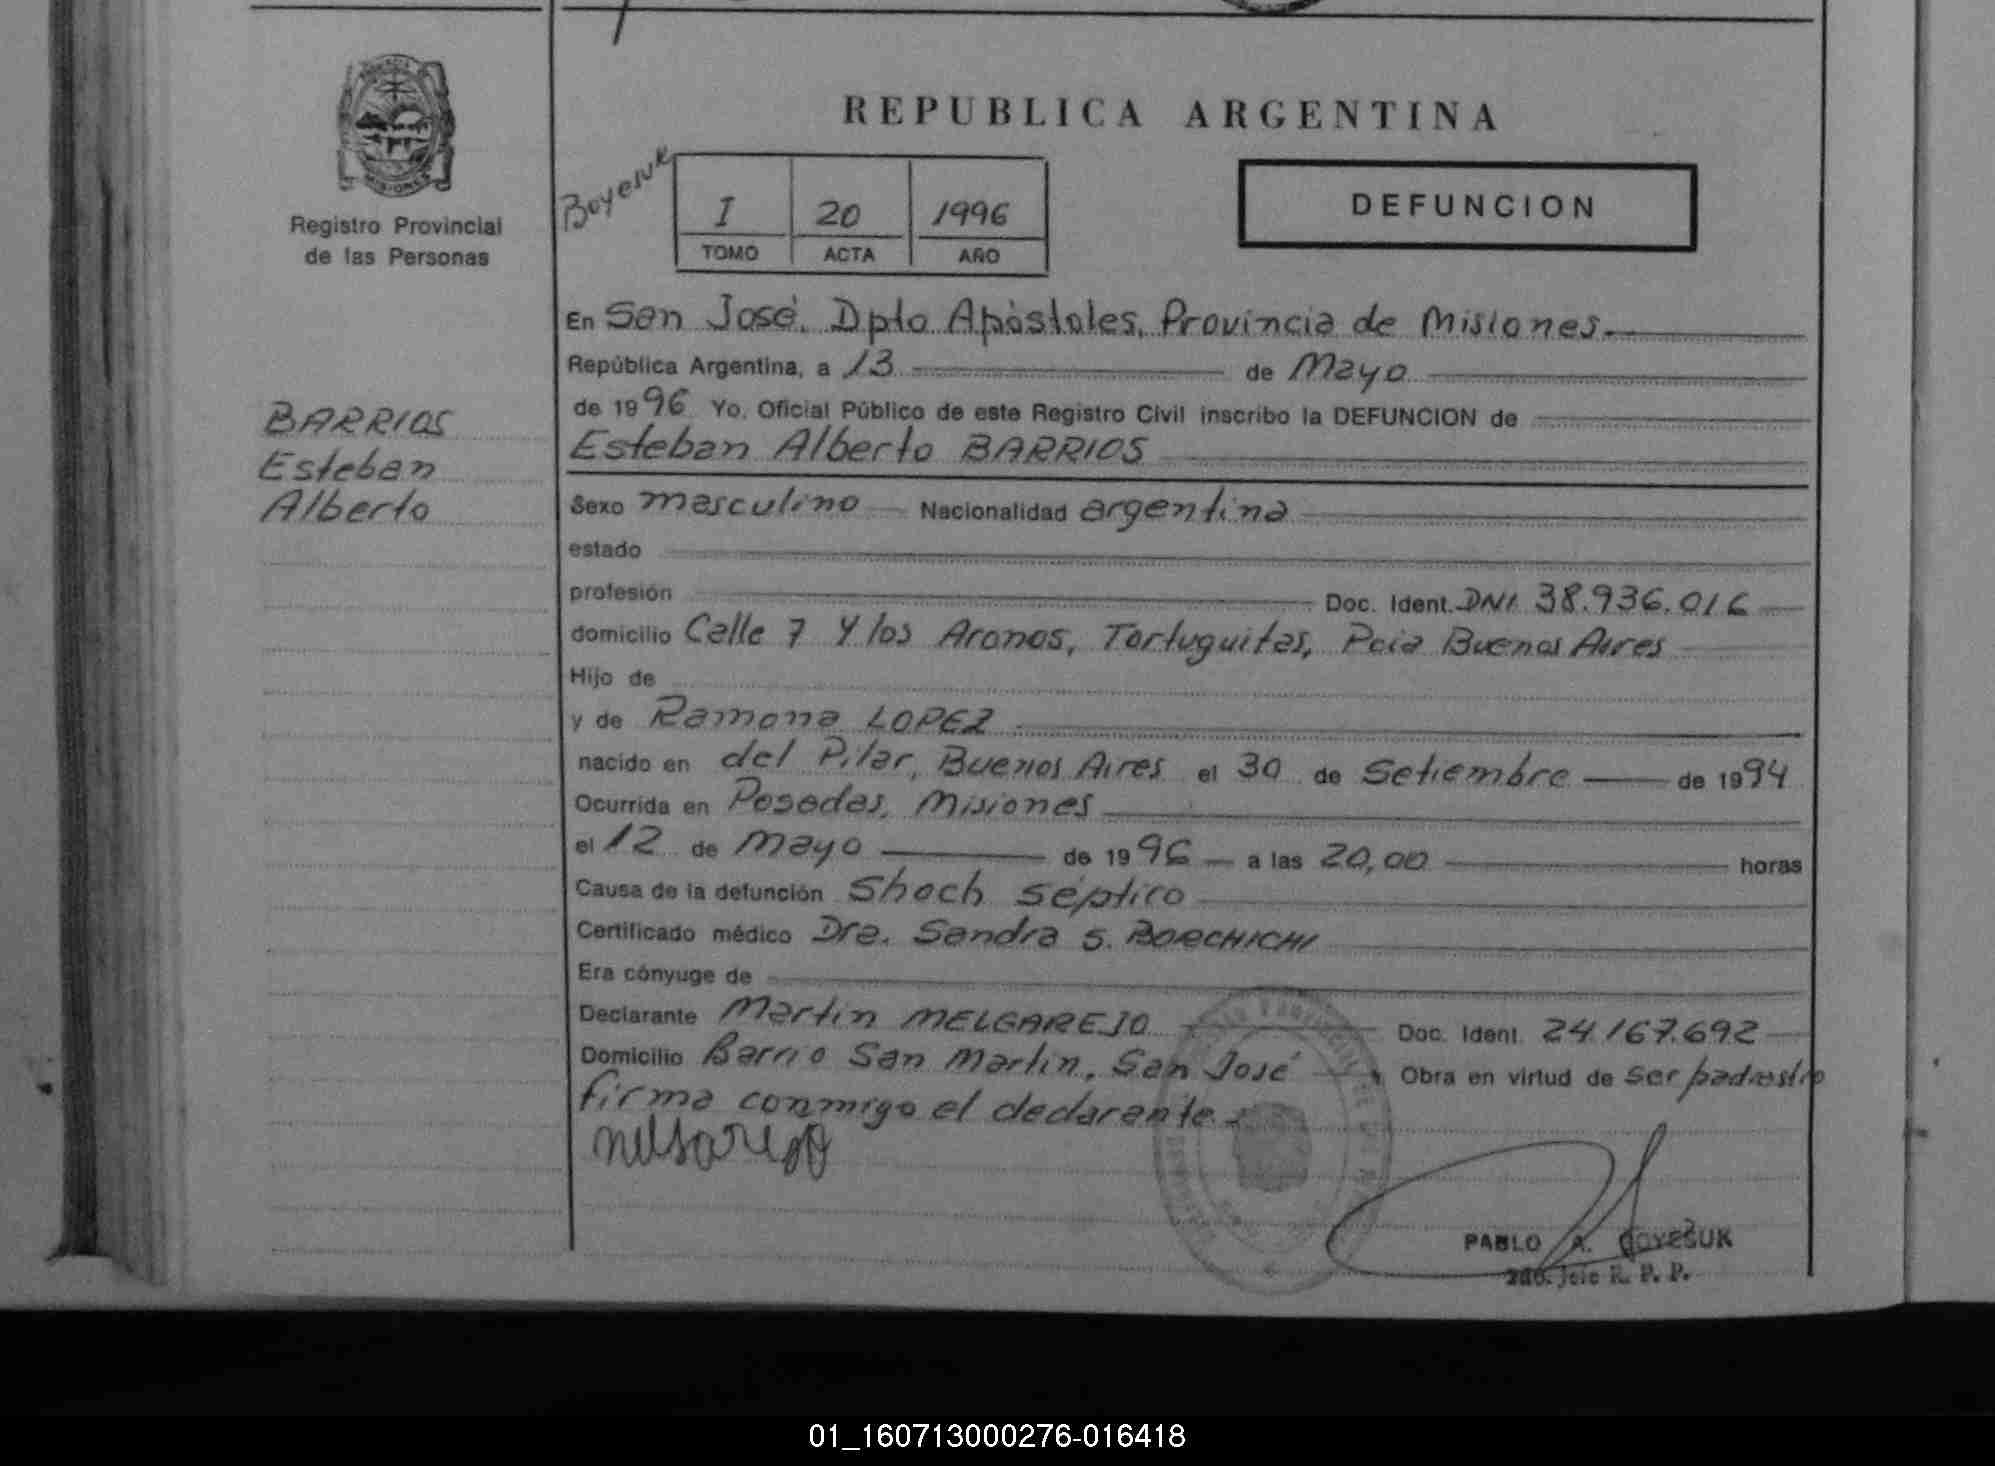 REPUBLICA ARGENTINA
MISIONES
Registro Provincial
de las Personas
Boyesuk
I 20 1996
TOMO ACTA AÑO
DEFUNCION
En San José, Dpto Apóstoles, Provincia de Misiones.
República Argentina, a 13 de Mayo
de 1996 Yo, Oficial Público de este Registro Civil inscribo la DEFUNCION de
Esteban Alberto BARRIOS
BARRIOS
Esteban
Alberto
Sexo masculino Nacionalidad argentina
estado
profesión Doc. Ident. DNI. 38.936.016
domicilio Calle 7 y los Aronos, Tortuguitas, Pcia Buenos Aires
Hijo de
y de Ramona LOPEZ
nacido en del Pilar, Buenos Aires el 30 de Setiembre de 1994
Ocurrida en Posadas, Misiones
el 12 de Mayo de 1996 a las 20,00 horas
Causa de la defunción Shoch séptico
Certificado médico Dra. Sandra S. BORCHICHI
Era cónyuge de
Declarante Martin MELGAREJO Doc. Ident. 24.167.692
Domicilio Barrio San Martin, San José Obra en virtud de ser padrastro
firma conmigo el declarante.
PABLO A. BOYESUK
2do. Jefe R. P. P.
01_160713000276-016418